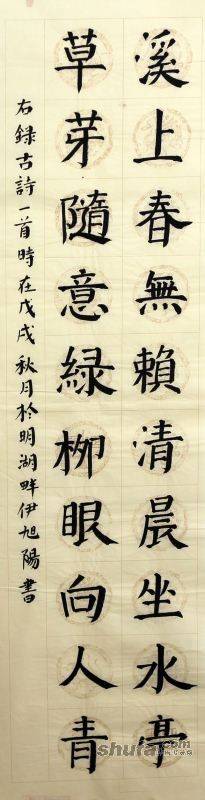 溪上春無賴清晨坐水亭
草芽隨意綠柳眼向人青
右錄古詩一首時在戊戌秋月於明湖畔伊旭陽書
shufa.com